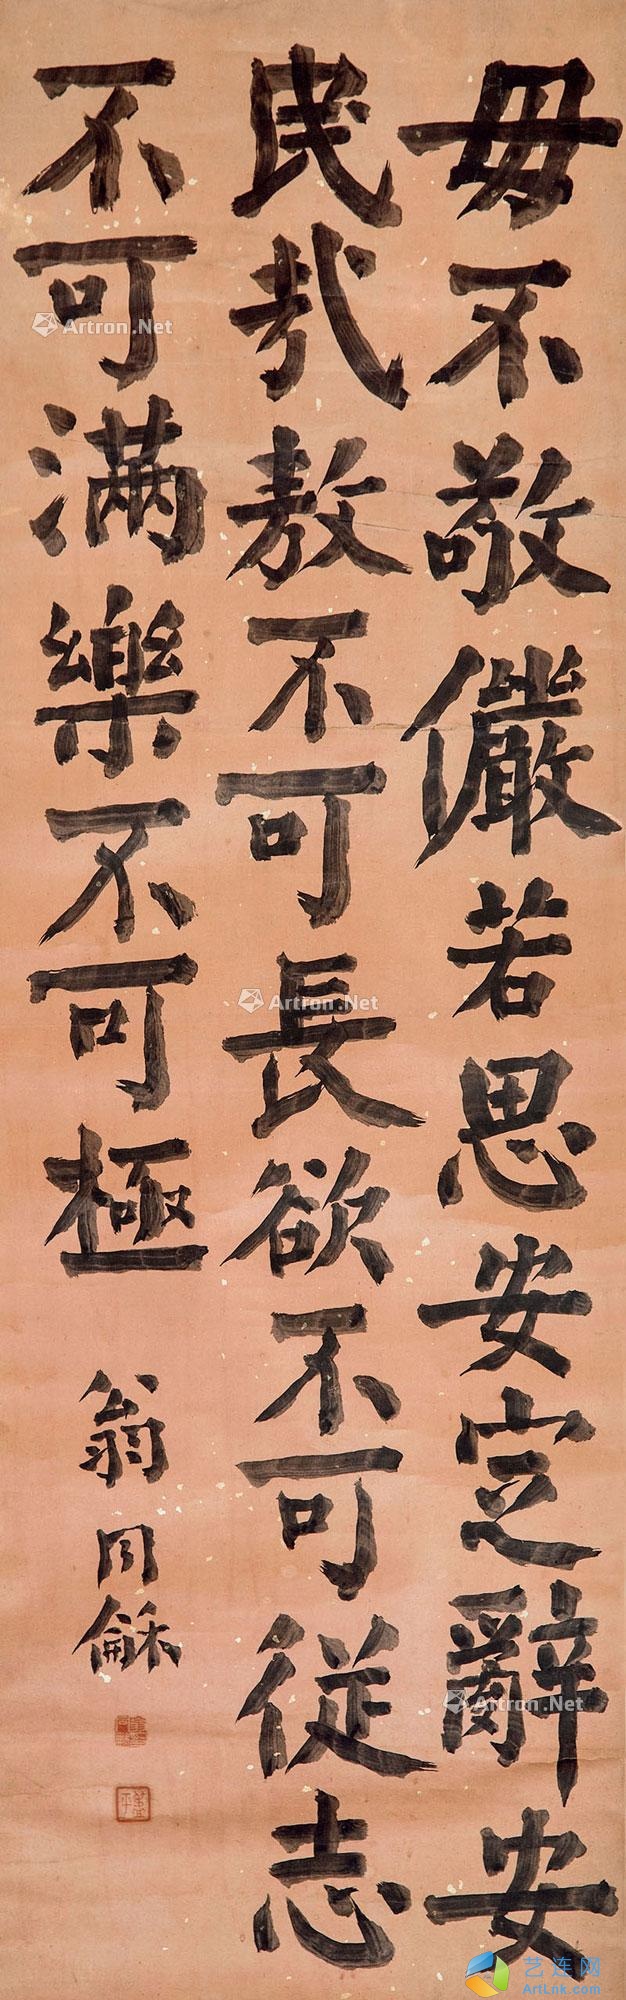 毋不敬儼若思安定辭安
民哉敖不可長欲不可從志
不可滿樂不可極
翁同龢
Artron.Net
Artron.Net
Artron.Net
Artron.Net
艺连网
ArtLnk.com